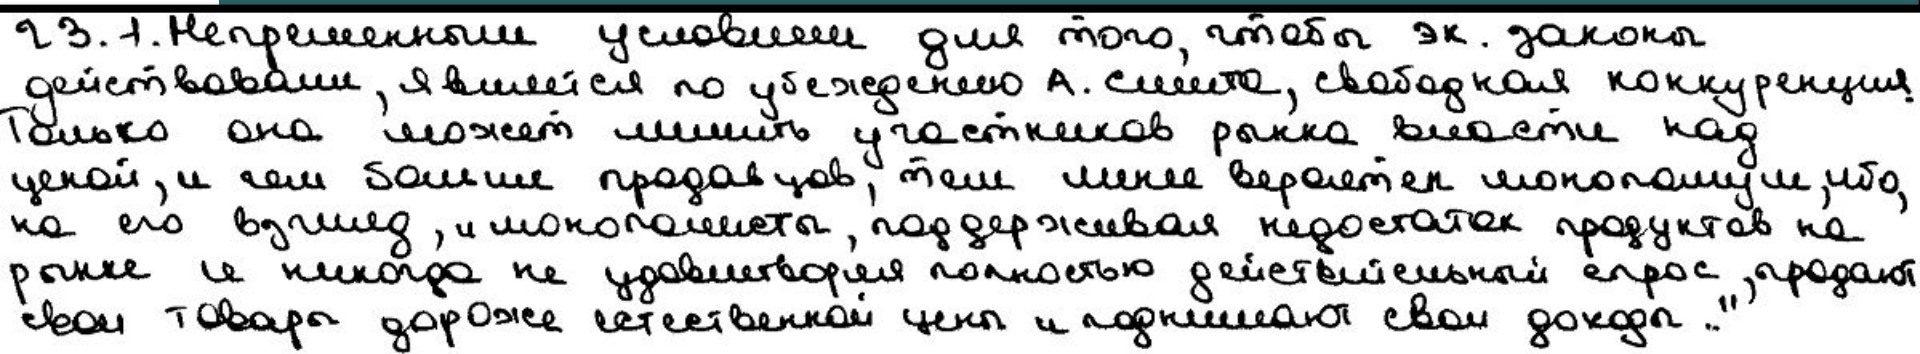 23.1. Непременным условием для того, чтобы эк. законы
действовали, является по убеждению А. Смита, свободная конкуренция.
Только она может лишить участников рынка власти над
ценой, и чем больше продавцов, тем менее вероятен монополизм, ибо,
на его взгляд, "монополисты, поддерживая недостаток продуктов на
рынке и никогда не удовлетворяя полностью действительный спрос, продают
свои товары дороже естественной цены и поднимают свои доходы.."